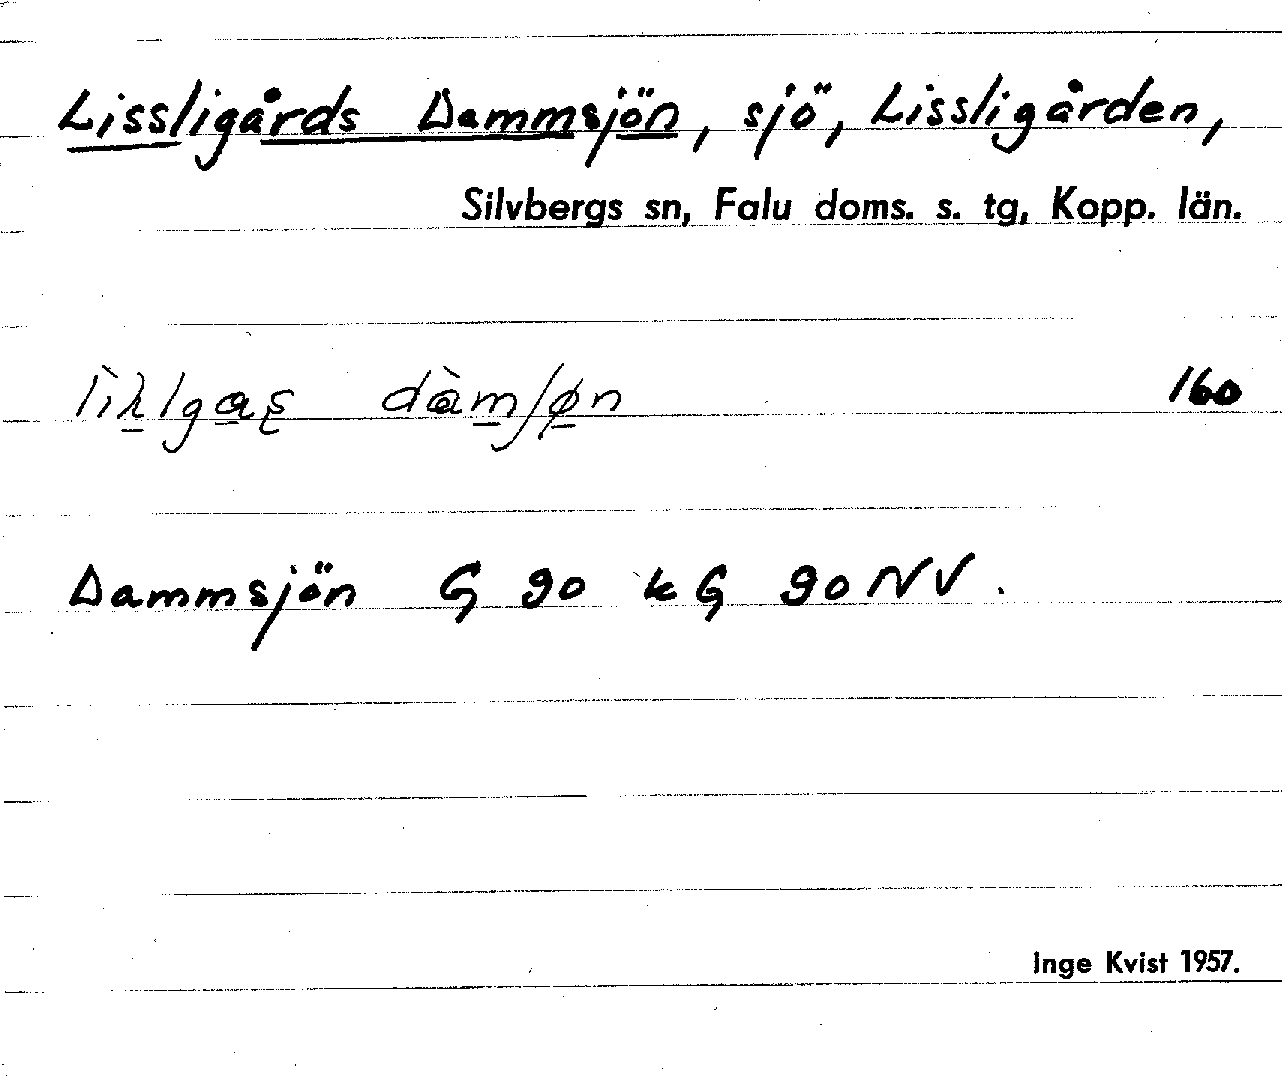 Lissligårds Dammsjön, sjö, Lissligården,
Silvbergs sn, Falu doms. s. tg, Kopp. län.
160
Dammsjön G 90 k G 90 NV.
Inge Kvist 1957.